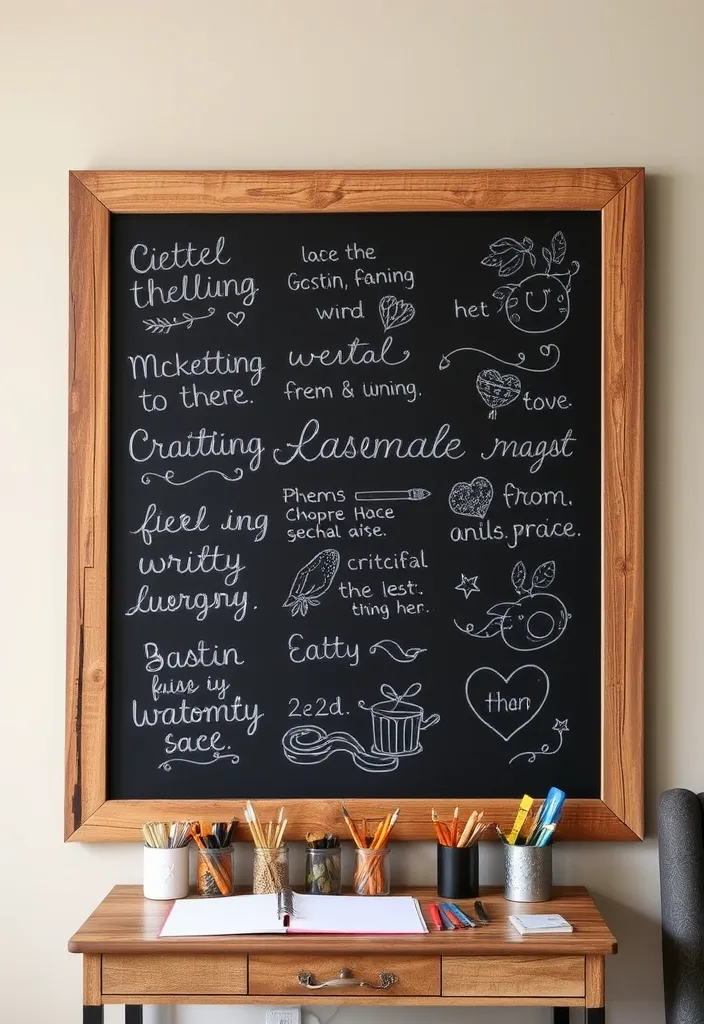 Ciettel
thelliung
Mcketting
to there.
Craitting
fieel ing
writty
luorgny.
Bastin
fuise iy
Watomty
sace.
lace the
Gcstin, faning
wird
westal
frem & wning.
Lasemale
Phems
Chopre Hace
sechal aise.
critcifal
the lest.
thing her.
Eatty
2e2d.
het
tove.
magst
from.
anils. prace.
than